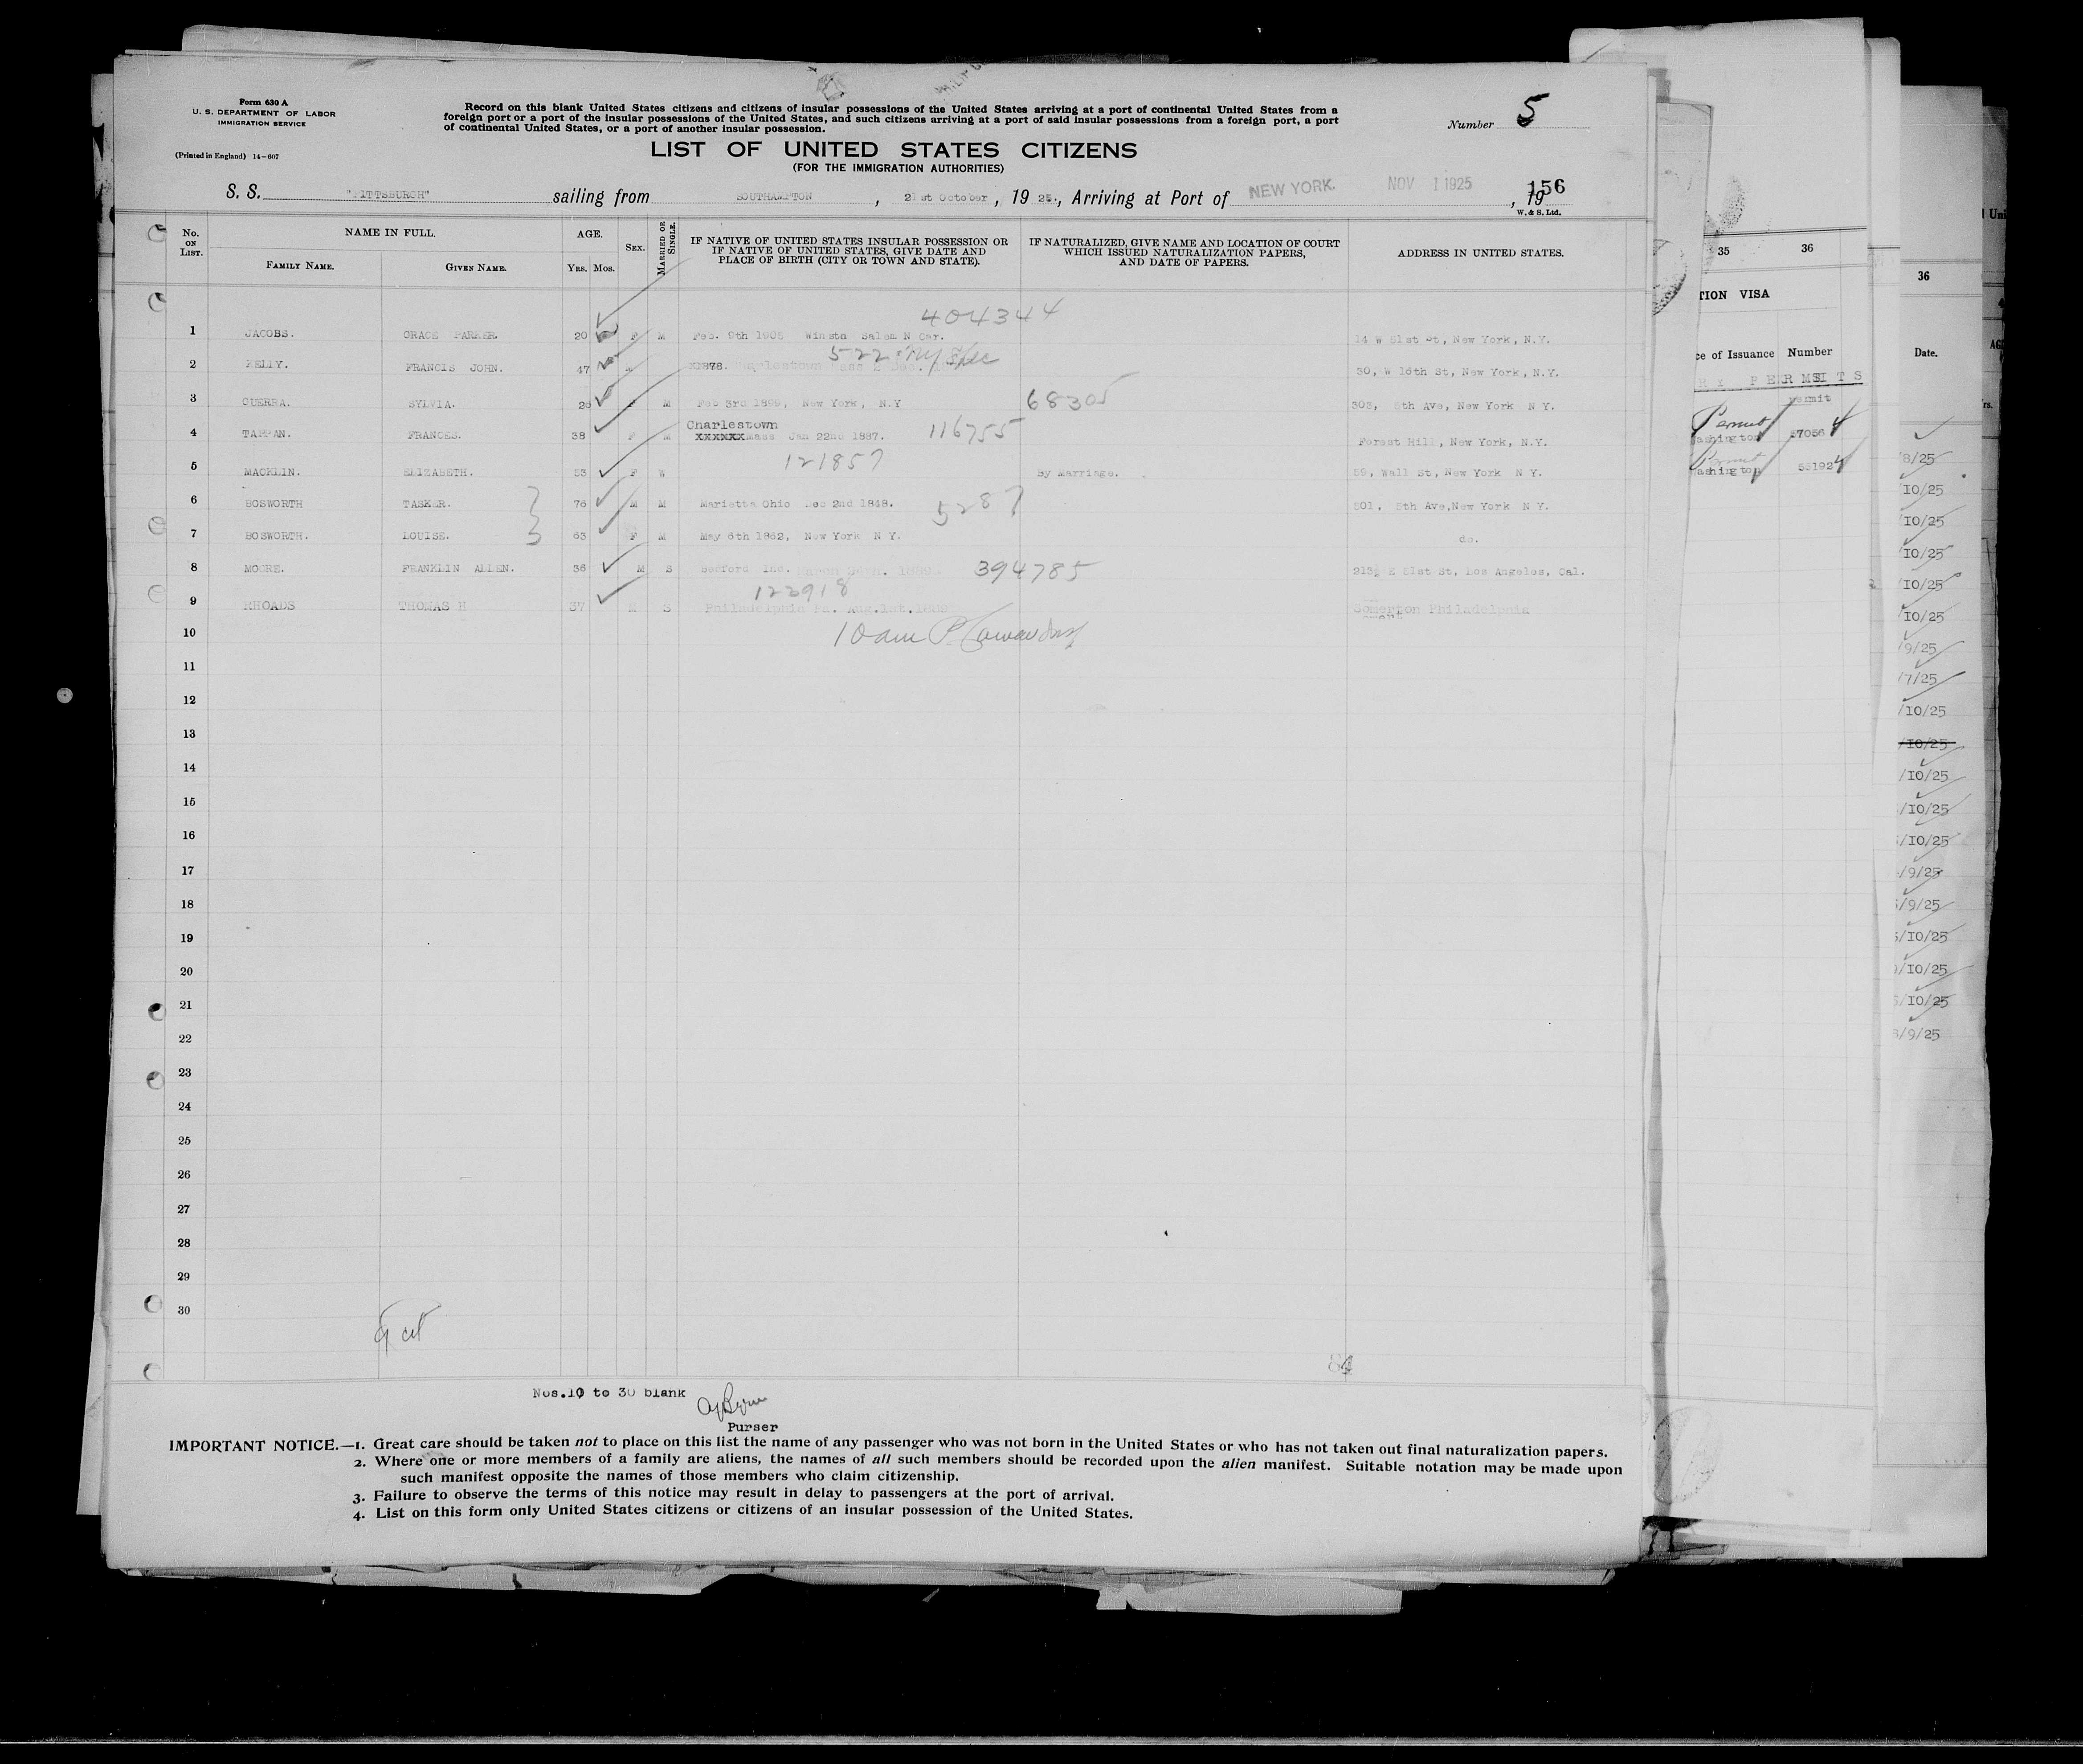 Form 630 A
U. S. DEPARTMENT OF LABOR
IMMIGRATION SERVICE
(Printed in England) 14-607
Record on this blank United States citizens and citizens of insular possessions of the United States arriving at a port of continental United States from a
foreign port or a port of the insular possessions of the United States, and such citizens arriving at a port of said insular possessions from a foreign port, a port
of continental United States, or a port of another insular possession.
Number 5
LIST OF UNITED STATES CITIZENS
(FOR THE IMMIGRATION AUTHORITIES)
S. S. "PITTSBURGH" sailing from SOUTHAMPTON, 21st October, 19 25., Arriving at Port of NEW YORK. NOV 1 1925, 19 156
W. & S. Ltd.
No. ON LIST. NAME IN FULL. FAMILY NAME. GIVEN NAME. AGE. YRS. MOS. SEX. MARRIED OR SINGLE.
IF NATIVE OF UNITED STATES INSULAR POSSESSION OR
IF NATIVE OF UNITED STATES, GIVE DATE AND
PLACE OF BIRTH (CITY OR TOWN AND STATE).
IF NATURALIZED, GIVE NAME AND LOCATION OF COURT
WHICH ISSUED NATURALIZATION PAPERS,
AND DATE OF PAPERS.
ADDRESS IN UNITED STATES.
404344
1 JACOBS. GRACE PARKER. 20 F M Feb. 9th 1905 Winstn Salem N Car. 14 W 81st St, New York, N.Y.
522
2 KELLY. FRANCIS JOHN. 47 1878. 30, W 16th St, New York, N.Y.
3 GUERRA. SYLVIA. 26 F M Feb 3rd 1899, New York, N.Y 68305 303, 5th Ave, New York N Y.
Charlestown
4 TAPPAN. FRANCES. 38 F M XXXXXX Mass Jan 22nd 1887. 116755 Forest Hill, New York, N.Y.
121857
5 MACKLIN. ELIZABETH. 53 F W By Marriage. 59, Wall St, New York N Y.
6 BOSWORTH TASKER. 76 M M Marietta Ohio Dec 2nd 1848. 5287 501, 5th Ave, New York N Y.
7 BOSWORTH. LOUISE. 63 F M May 6th 1862, New York N Y. do.
8 MOORE. FRANKLIN ALLEN. 36 M S Bedford Ind. 394785 213½ E 81st St, Los Angeles, Cal.
123918
9 RHOADS THOMAS H 37 M S Philadelphia Pa. Aug.1st. Somerton Philadelphia
10 10am
11
12
13
14
15
16
17
18
19
20
21
22
23
24
25
26
27
28
29
30
84
Nos.10 to 30 blank
Purser
IMPORTANT NOTICE.—1. Great care should be taken not to place on this list the name of any passenger who was not born in the United States or who has not taken out final naturalization papers.
2. Where one or more members of a family are aliens, the names of all such members should be recorded upon the alien manifest. Suitable notation may be made upon
such manifest opposite the names of those members who claim citizenship.
3. Failure to observe the terms of this notice may result in delay to passengers at the port of arrival.
4. List on this form only United States citizens or citizens of an insular possession of the United States.
35 36
TION VISA
ce of Issuance Number
PERMITS
permit
Permit
ashington 57056
ashington 55192
36
Date.
8/25
10/25
10/25
10/25
10/25
10/25
/9/25
/7/25
/10/25
/10/25
/10/25
/10/25
/10/25
/9/25
/9/25
/10/25
/10/25
/10/25
/9/25